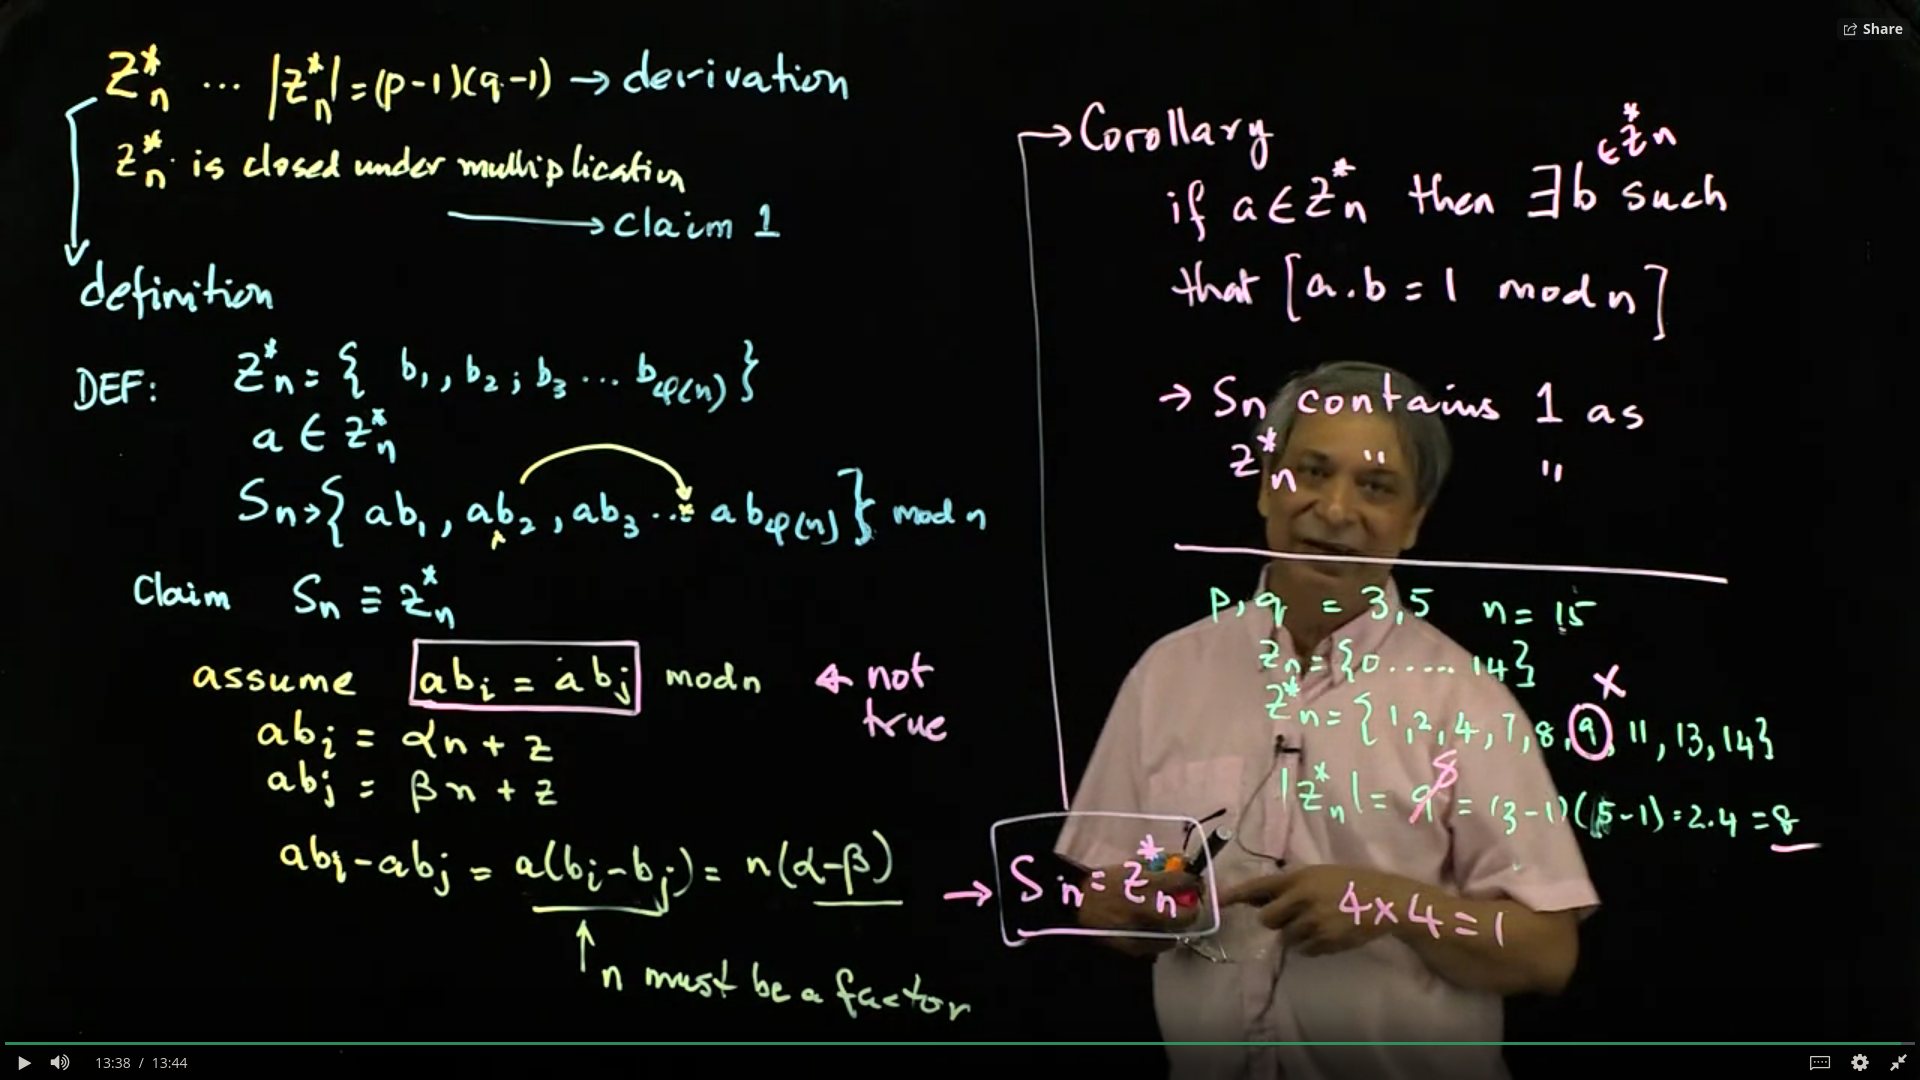 Share
Z*n ... |Z*n| = (p-1)(q-1) → derivation
Z*n is closed under multiplication
→ Claim 1
definition
DEF: Z*n = { b1, b2, b3 ... bφ(n) }
a ∈ Z*n
Sn → { ab1, ab2, ab3 ... abφ(n) } mod n
Claim Sn ≡ Z*n
assume abi = abj mod n ← not true
abi = αn + z
abj = βn + z
abi - abj = a(bi - bj) = n(α-β)
↑ n must be a factor
→ Sn = Z*n
→ Corollary
if a ∈ Z*n then ∃ b ∈ Z*n such
that [a.b = 1 mod n]
→ Sn contains 1 as
Z*n " "
p, q = 3, 5 n = 15
Zn = {0 ..... 14}
x
Z*n = { 1, 2, 4, 7, 8, 9, 11, 13, 14}
|Z*n| = 9 8 = (3-1)(5-1) = 2.4 = 8
4x4=1
13:38 / 13:44